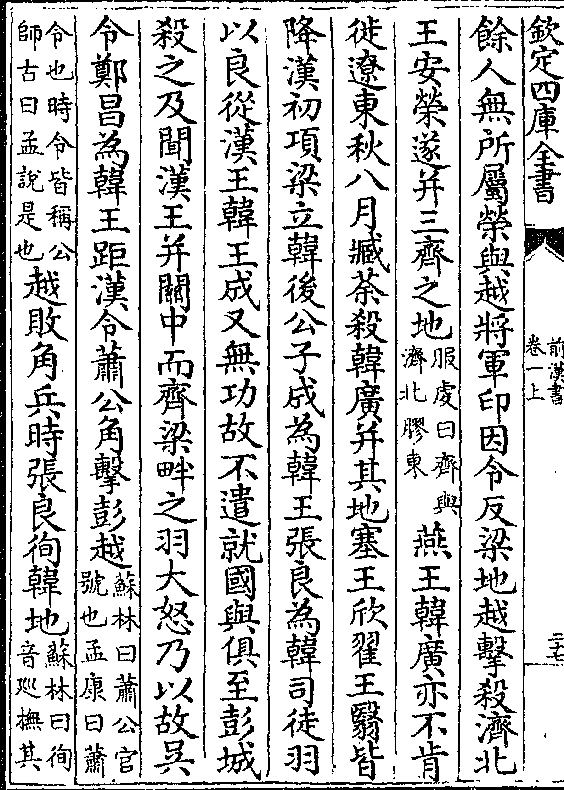 欽定四庫全書
前漢書
卷一上
二十七
餘人無所屬榮與越將軍印因令反梁地越擊殺濟北
王安榮遂并三齊之地服虔曰齊與濟北膠東燕王韓廣亦不肯
徙遼東秋八月臧荼殺韓廣并其地塞王欣翟王翳皆
降漢初項梁立韓後公子成為韓王張良為韓司徒羽
以良從漢王韓王成又無功故不遣就國與俱至彭城
殺之及聞漢王并關中而齊梁畔之羽大怒乃以故吳
令鄭昌為韓王距漢令蕭公角擊彭越蘇林曰蕭公官號也孟康曰蕭
令也時令皆稱公師古曰孟說是也越敗角兵時張良徇韓地蘇林曰徇音巡撫其